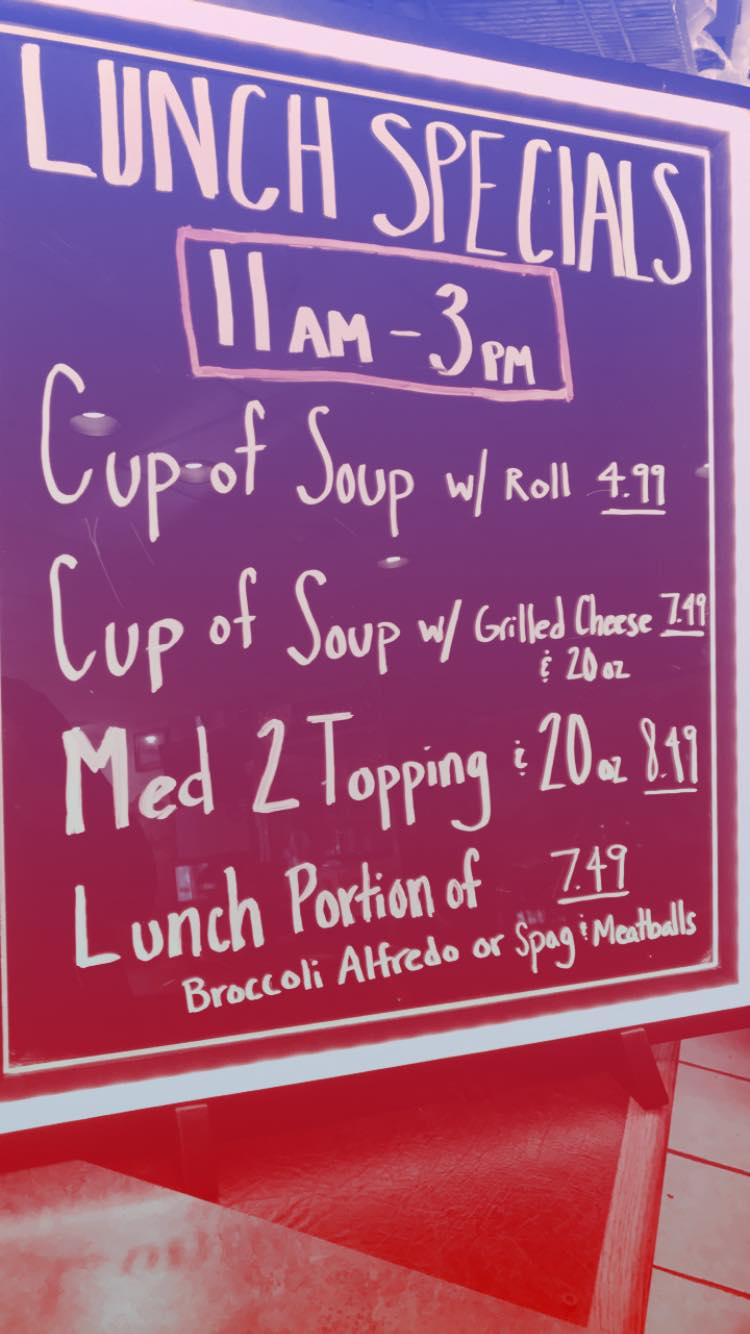 LUNCH SPECIALS
11AM - 3PM
Cup of Soup w/ Roll 4.99
Cup of Soup w/ Grilled Cheese 7.49
& 20oz
Med 2 Topping & 20oz 8.49
Lunch Portion of 7.49
Broccoli Alfredo or Spag & Meatballs